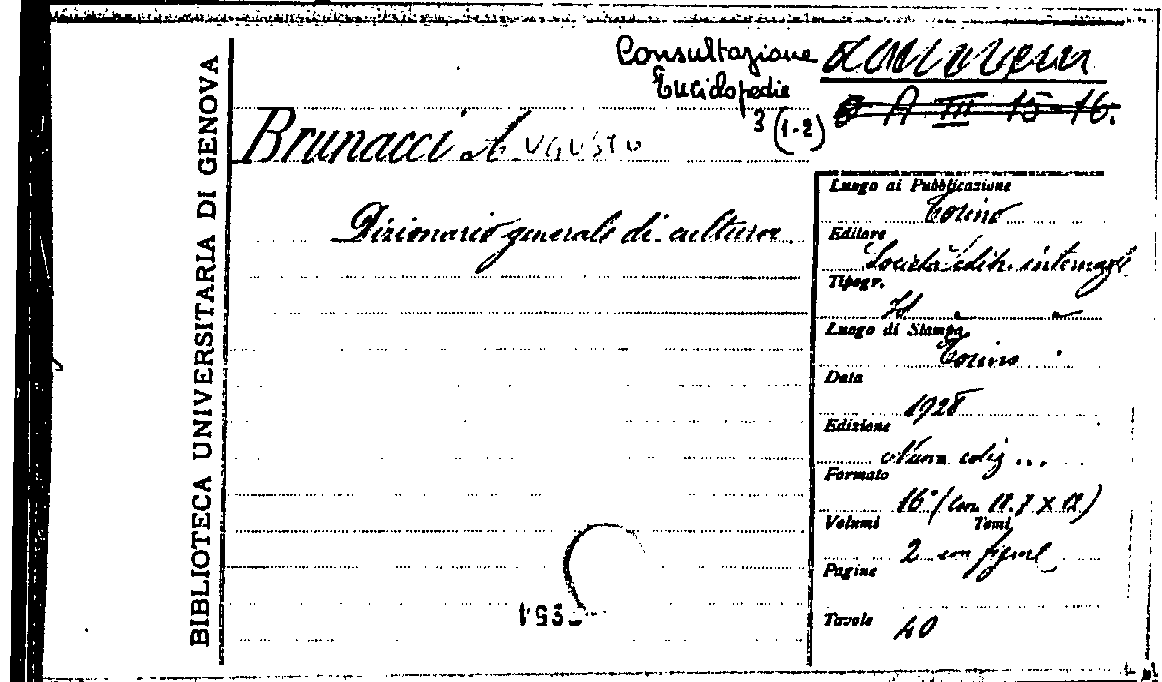 BIBLIOTECA UNIVERSITARIA DI GENOVA
Consultazione
Enciclopedie
3 (1-2)
A III 15-16.
Brunacci Augusto
Dizionario generale di cultura
Luogo di Pubblicazione
Torino
Editore
Società edit. internaz.
Tipogr.
Id " "
Luogo di Stampa
Torino
Data
1928
Edizione
Nuova ediz...
Formato
16°
Volumi Tomi
2 con figure
Pagine
Tavole 40